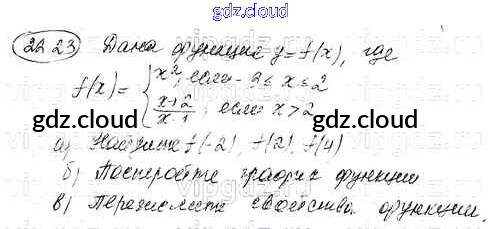 gdz.cloud
22.23 Дана функция y=f(x), где
f(x)= { x², если -2 ≤ x ≤ 2
x+2/x-1, если x > 2
gdz.cloud gdz.cloud
а) Найдите f(-2), f(2), f(4)
б) Постройте график функции
в) Перечислите свойства функции.
gdz.cloud